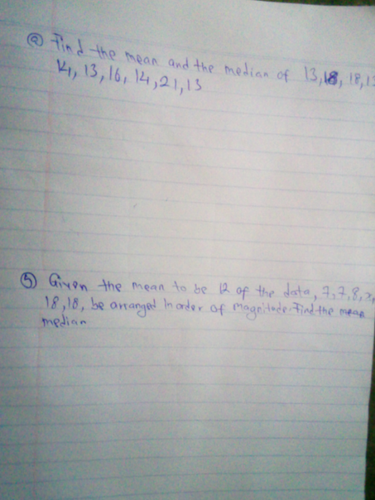 ② Find the mean and the median of 13, 18, 18, 13
14, 13, 16, 14, 21, 13
③ Given the mean to be 12 of the data, 7, 7, 8, x,
18, 18, be arranged in order of magnitude. Find the mean
median